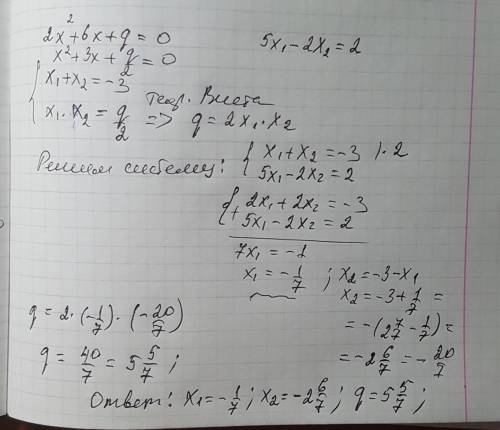 2x² + 6x + q = 0
5x₁ - 2x₂ = 2
x² + 3x + q/2 = 0
{ x₁ + x₂ = -3
x₁ · x₂ = q/2 => q = 2x₁ · x₂
теор. Виета
Решим систему: { x₁ + x₂ = -3 | · 2
5x₁ - 2x₂ = 2
{+ 2x₁ + 2x₂ = -3
5x₁ - 2x₂ = 2
7x₁ = -1
x₁ = -1/7 ; x₂ = -3 - x₁
x₂ = -3 + 1/7 =
= -(2 7/7 - 1/7) =
= -2 6/7 = -20/7
q = 2 · (-1/7) · (-20/7)
q = 40/7 = 5 5/7 ;
Ответ: x₁ = -1/7 ; x₂ = -2 6/7 ; q = 5 5/7 ;